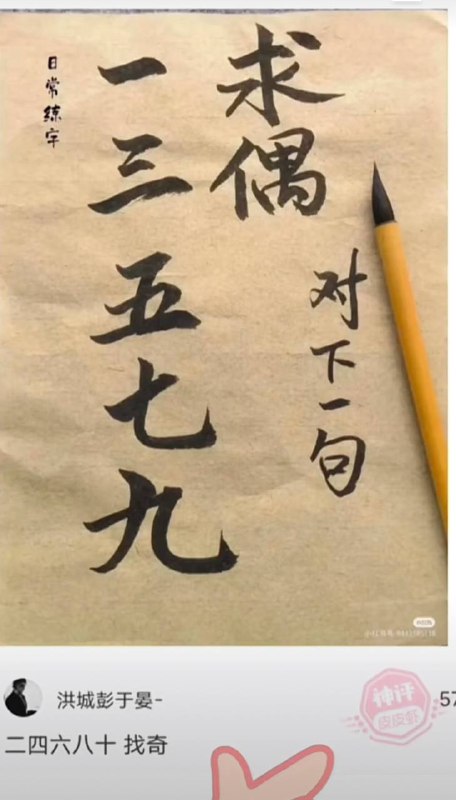 求偶
一三五七九
对下一句
日常练字
洪城彭于晏-
神评
皮皮虾
57
二四六八十 找奇